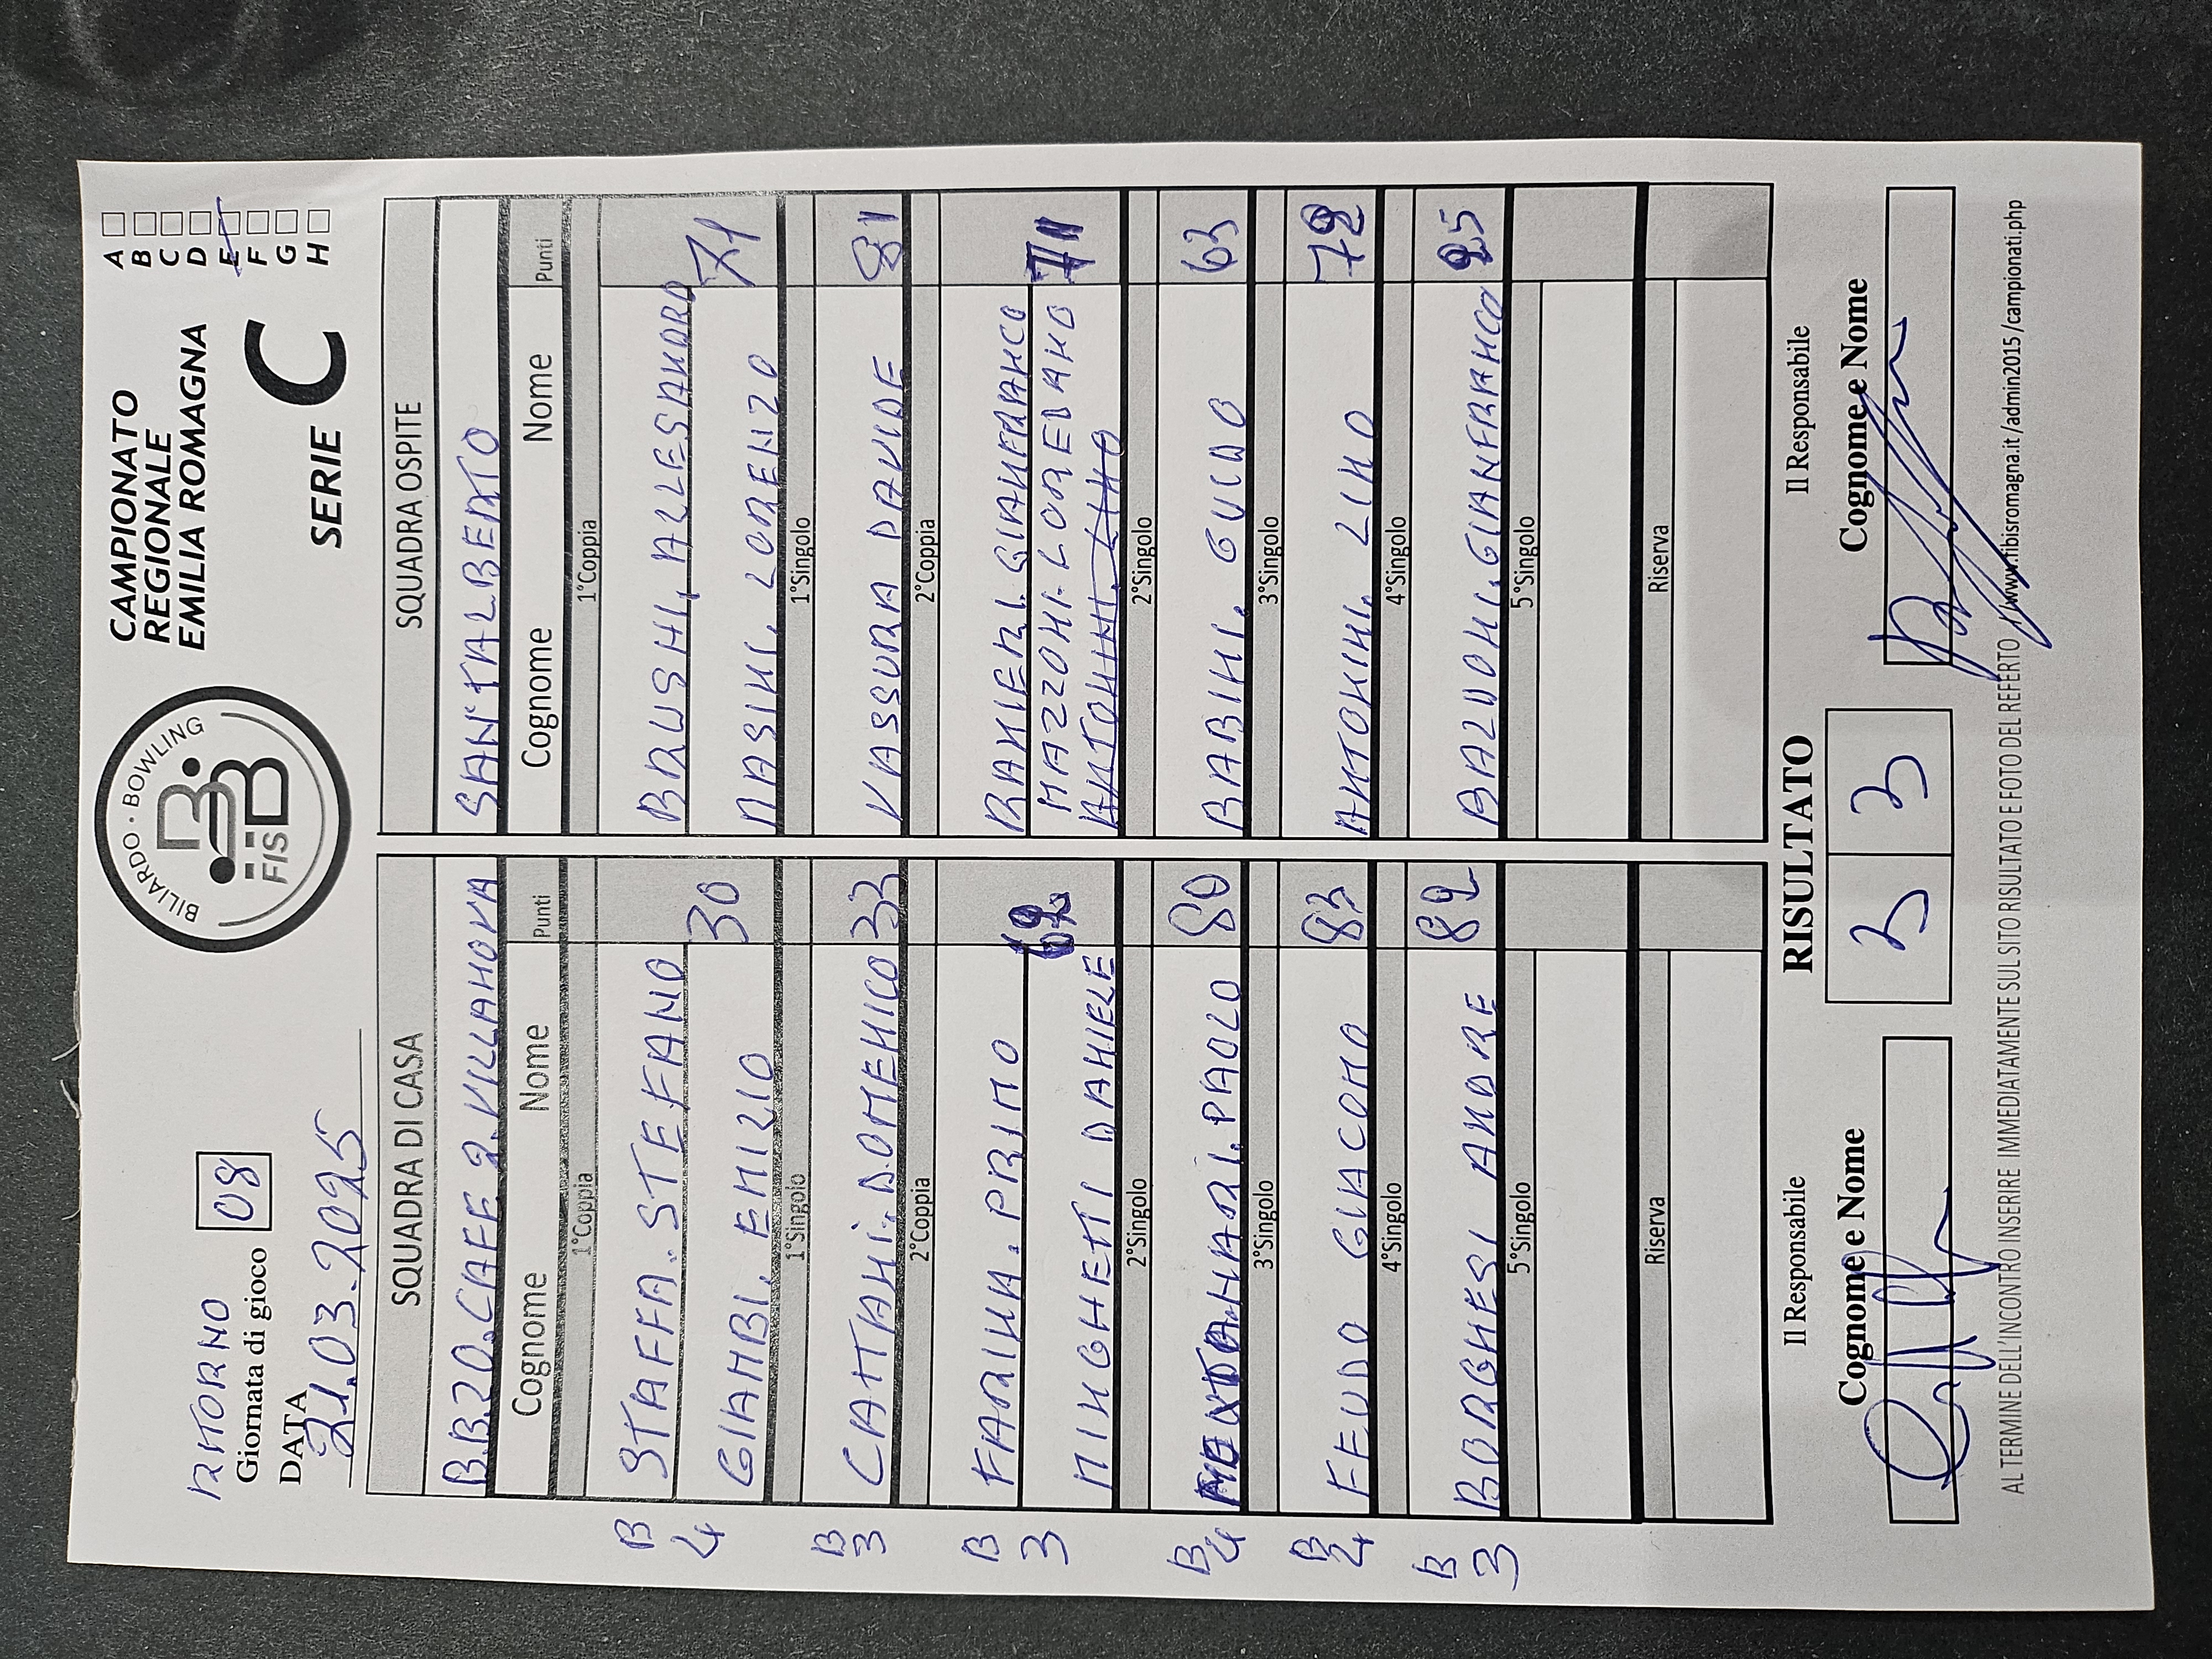 RITORNO
Giornata di gioco 08
DATA
21.03.2025
BILIARDO · BOWLING
FISBB
CAMPIONATO
REGIONALE
EMILIA ROMAGNA
SERIE C
A
B
C
D
E
F
G
H
SQUADRA DI CASA
B.B.20.CAFE 2.VILLANOVA
Cognome Nome Punti
1°Coppia
B STAFFA.STEFANO
4 GIAMBI.EMIZIO 30
1°Singolo
B3 CATTANI.DOMENICO 33
2°Coppia
B FARINA.PRIMO
3 MINGHETTI DANIELE 62
2°Singolo
B4 MONTANARI.PAOLO 80
3°Singolo
B4 FEUDO GIACOMO 83
4°Singolo
B3 BORGHESI ANDRE 82
5°Singolo
Riserva
SQUADRA OSPITE
SANTALBERTO
Cognome Nome Punti
1°Coppia
BRUSHI.ALLESANDRO
MASINI.LORENZO 71
1°Singolo
VASSURA DAVIDE 81
2°Coppia
RANIERI.GIANFRANCO
MAZZONI.LOREDANO 71
ANTONINI.LINO
2°Singolo
BABINI.GUIDO 63
3°Singolo
ANTONINI.LINO 72
4°Singolo
BALDONI.GIANFRANCO 25
5°Singolo
Riserva
Il Responsabile
Cognome e Nome
RISULTATO
3 3
Il Responsabile
Cognome e Nome
AL TERMINE DELL'INCONTRO INSERIRE IMMEDIATAMENTE SUL SITO RISULTATO E FOTO DEL REFERTO //www.fibisromagna.it/admin2015/campionati.php